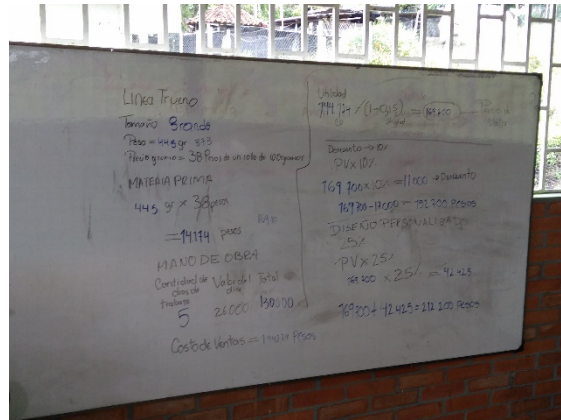 Linea Trueno
Tamaño Grande
Peso = 445 gr
Precio gramo = 38 Pesos de un rollo de 100 gramos
MATERIA PRIMA
445 gr x 38 pesos
= 14174 pesos
MANO DE OBRA
Cantidad de dias de trabajo Valor del dia Total
5 26000 130000
Costo de Ventas =
Utilidad
Descuento → 10%
PV x 10%
169 700 x 10% = 17000 → Descuento
169 700 - 17000 = 152 700 Pesos
DISEÑO PERSONALIZADO
25%
PV x 25%
169 700 x 25% = 42 425
169 700 + 42 425 = 212 200 Pesos